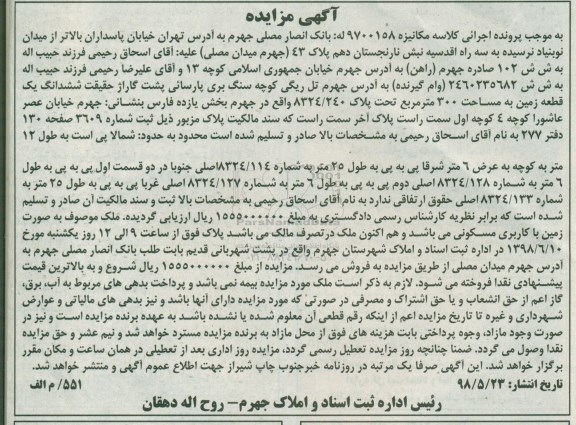 آگهی مزایده
به موجب پرونده اجرائی کلاسه مکانیزه ۹۷۰۰۱۵۸ له: بانک انصار مصلی جهرم به آدرس تهران خیابان پاسداران بالاتر از میدان
نوبنیاد نرسیده به سه راه اقدسیه نبش نارنجستان دهم پلاک ۴۳ (جهرم میدان مصلی) علیه: آقای اسحاق رحیمی فرزند حبیب اله
به ش ش ۱۰۲ صادره جهرم (راهن) به آدرس جهرم خیابان جمهوری اسلامی کوچه ۱۳ و آقای علیرضا رحیمی فرزند حبیب اله
به ش ش ۲۴۶۰۲۳۵۶۸۲ (وام گیرنده) به آدرس جهرم تل ریگی کوچه سنگ بری پارسانی پشت گاراژ حقیقت ششدانگ یک
قطعه زمین به مساحت ۳۰۰ مترمربع تحت پلاک ۸۳۲۴/۲۴۰ واقع در جهرم بخش یازده فارس بنشانی: جهرم خیابان عصر
عاشورا کوچه ۴ کوچه اول سمت راست پلاک آخر سمت راست که سند مالکیت پلاک مزبور ذیل ثبت شماره ۳۶۰۹ صفحه ۱۳۰
دفتر ۲۷۷ به نام آقای اسحاق رحیمی به مشخصات بالا صادر و تسلیم شده است محدود به حدود: شمالا پی است به طول ۱۲
متر به کوچه به عرض ۶ متر شرقا پی به پی به طول ۲۵ متر به شماره ۸۳۲۴/۱۱۴اصلی جنوبا در دو قسمت اول پی به پی به طول
۶ متر به شماره ۸۳۲۴/۱۲۸ اصلی دوم پی به پی به طول ۶ متر به شماره ۸۳۲۴/۱۲۷ اصلی غربا پی به پی به طول ۲۵ متر به
شماره ۸۳۲۴/۱۳۳ اصلی حقوق ارتفاقی ندارد به نام آقای اسحاق رحیمی به مشخصات بالا ثبت و سند مالکیت آن صادر و تسلیم
شده است که برابر نظریه کارشناس رسمی دادگستری به مبلغ ۱۵۵۵۰۰۰۰۰۰ ریال ارزیابی گردیده، ملک موصوف به صورت
زمین با کاربری مسکونی می باشد و هم اکنون ملک در تصرف مالک می باشد پلاک فوق از ساعت ۹ الی ۱۲ روز یکشنبه مورخ
۱۳۹۸/۶/۱۰ در اداره ثبت اسناد و املاک شهرستان جهرم واقع در پشت شهربانی قدیم بابت طلب بانک انصار مصلی جهرم به
آدرس جهرم میدان مصلی از طریق مزایده به فروش می رسد. مزایده از مبلغ ۱۵۵۵۰۰۰۰۰۰ ریال شروع و به بالاترین قیمت
پیشنهادی نقدا فروخته می شود. لازم به ذکر است ملک مورد مزایده بیمه نمی باشد و پرداخت بدهی های مربوط به آب، برق،
گاز اعم از حق انشعاب و یا حق اشتراک و مصرفی در صورتی که مورد مزایده دارای آنها باشد و نیز بدهی های مالیاتی و عوارض
شهرداری و غیره تا تاریخ مزایده اعم از اینکه رقم قطعی آن معلوم شده یا نشده باشد به عهده برنده مزایده است و نیز در
صورت وجود مازاد، وجوه پرداختی بابت هزینه های فوق از محل مازاد به برنده مزایده مسترد خواهد شد و نیم عشر و حق مزایده
نقدا وصول می گردد. ضمنا چنانچه روز مزایده تعطیل رسمی گردد، مزایده روز اداری بعد از تعطیلی در همان ساعت و مکان مقرر
برگزار خواهد شد. این آگهی صرفا یک مرتبه در روزنامه خبرجنوب چاپ شیراز جهت اطلاع عموم آگهی و منتشر خواهد شد.
تاریخ انتشار: ۹۸/۵/۲۳
۵۵۱/ م الف
رئیس اداره ثبت اسناد و املاک جهرم– روح اله دهقان